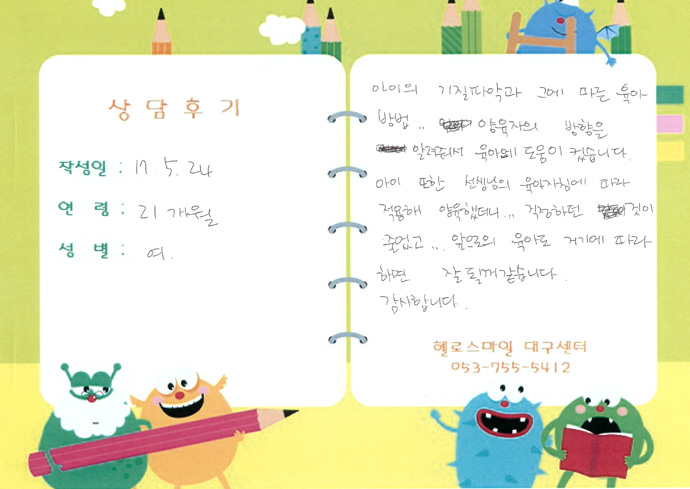 상담후기
작성일 : 17. 5. 24
연 령 : 21개월
성 별 : 여.
아이의 기질파악과 그에 따른 육아
방법,, 양육자의 방향을
알려줘서 육아에 도움이 컸습니다.
아이 또한 선생님의 육아지침에 따라
적용해 양육했더니... 걱정하던 것이
줄었고... 앞으로의 육아도 거기에 따라
하면 잘 될꺼같습니다.
감사합니다.
헬로스마일 대구센터
053-755-5412